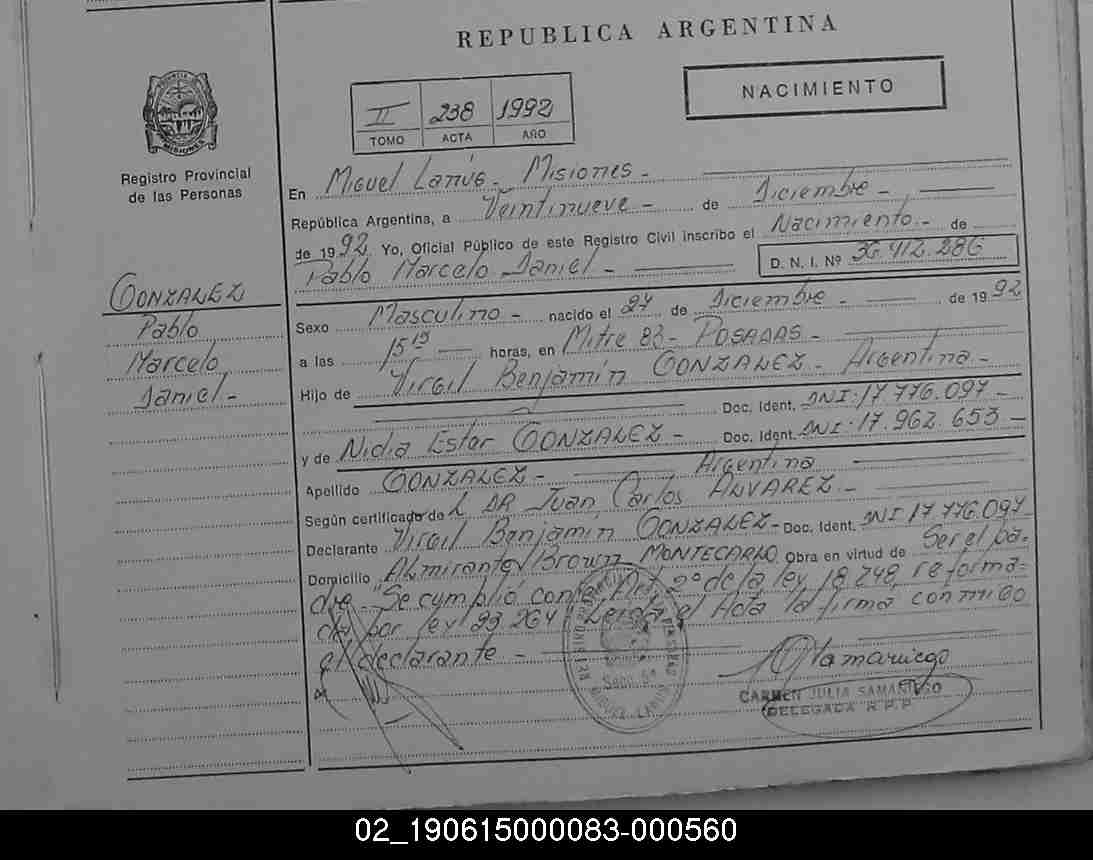 REPUBLICA ARGENTINA
NACIMIENTO
II 238 1992
TOMO ACTA AÑO
Registro Provincial
de las Personas
GONZALEZ
Pablo
Marcelo
Daniel -
En Miguel Lanús - Misiones -
República Argentina, a Veintinueve - de Diciembre -
de 1992 Yo, Oficial Público de este Registro Civil inscribo el Nacimiento - de
Pablo Marcelo Daniel - D. N. I. Nº 36.412.286
Sexo Masculino - nacido el 27 de Diciembre - de 1992
a las 15 15 horas, en Mitre 83 - POSADAS -
Hijo de Virgil Benjamín GONZALEZ - Argentina -
Doc. Ident. DNI: 17.776.097 -
y de Nidia Ester GONZALEZ - Doc. Ident. DNI: 17.962.653 -
Argentina
Apellido GONZALEZ -
Según certificado de L DR Juan Carlos ALVAREZ -
Declarante Virgil Benjamín GONZALEZ - Doc. Ident. DNI 17.776.097
Domicilio Almirante Brown MONTECARLO Obra en virtud de Ser el pa-
dre - "Se cumplió con el Art 2º de la ley 18.248, reforma-
da por ley 23.264" Leída el Acta la firma conmigo
el declarante -
CARMEN JULIA SAMANIEGO
DELEGADA R.P.P.
02_190615000083-000560